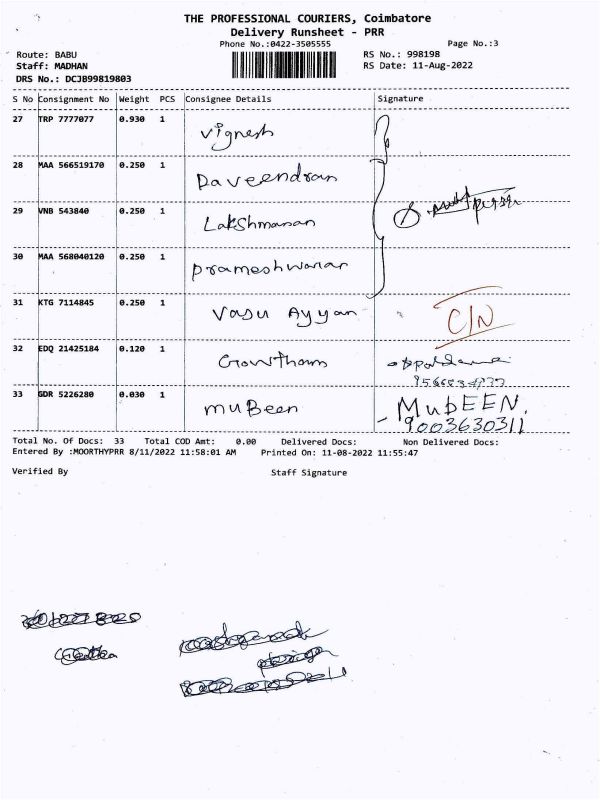 THE PROFESSIONAL COURIERS, Coimbatore
Delivery Runsheet - PRR
Phone No.:0422-3505555 Page No.:3
Route: BABU RS No.: 998198
Staff: MADHAN RS Date: 11-Aug-2022
DRS No.: DCJB99819803
S No Consignment No Weight PCS Consignee Details Signature
27 TRP 7777077 0.930 1 Vignesh
28 MAA 566519170 0.250 1 Daveendran
29 VNB 543840 0.250 1 Lakshmanan
30 MAA 568040120 0.250 1 Prameshwaran
31 KTG 7114845 0.250 1 Vasu Ayyan C/N
32 EDQ 21425184 0.120 1 Gowtham
33 GDR 5226280 0.030 1 muBeen - MubEEN.
9003630311
Total No. Of Docs: 33 Total COD Amt: 0.00 Delivered Docs: Non Delivered Docs:
Entered By :MOORTHYPRR 8/11/2022 11:58:01 AM Printed On: 11-08-2022 11:55:47
Verified By Staff Signature